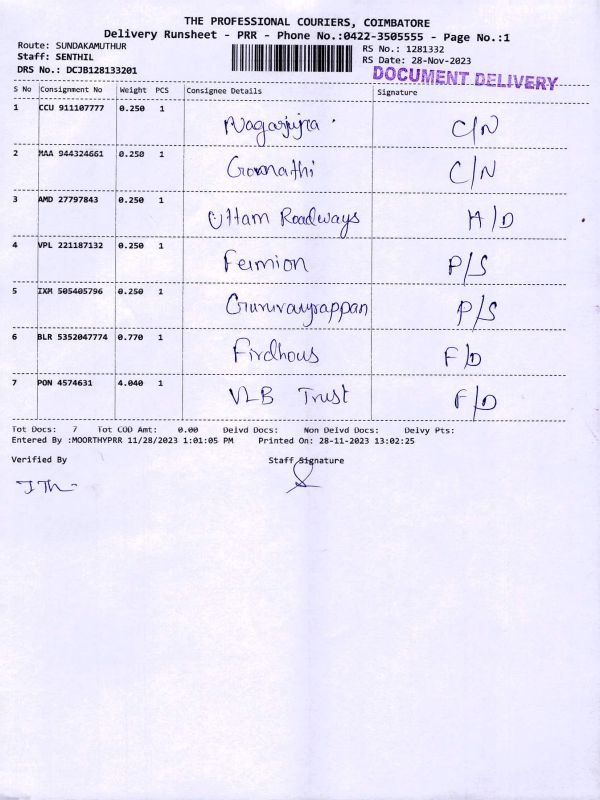 THE PROFESSIONAL COURIERS, COIMBATORE
Delivery Runsheet - PRR - Phone No.:0422-3505555 - Page No.:1
Route: SUNDAKAMUTHUR RS No.: 1281332
Staff: SENTHIL RS Date: 28-Nov-2023
DRS No.: DCJB128133201 DOCUMENT DELIVERY
S No Consignment No Weight PCS Consignee Details Signature
1 CCU 911107777 0.250 1 Nagarjujra C/N
2 MAA 944324661 0.250 1 Gomathi C/N
3 AMD 27797843 0.250 1 Uttam Roadways A/D
4 VPL 221187132 0.250 1 Feimion P/S
5 IXM 505405796 0.250 1 P/S
6 BLR 5352047774 0.770 1 Firdhous F/D
7 PON 4574631 4.040 1 VLB Trust F/D
Tot Docs: 7 Tot COD Amt: 0.00 Delvd Docs: Non Delvd Docs: Delvy Pts:
Entered By :MOORTHYPRR 11/28/2023 1:01:05 PM Printed On: 28-11-2023 13:02:25
Verified By Staff Signature